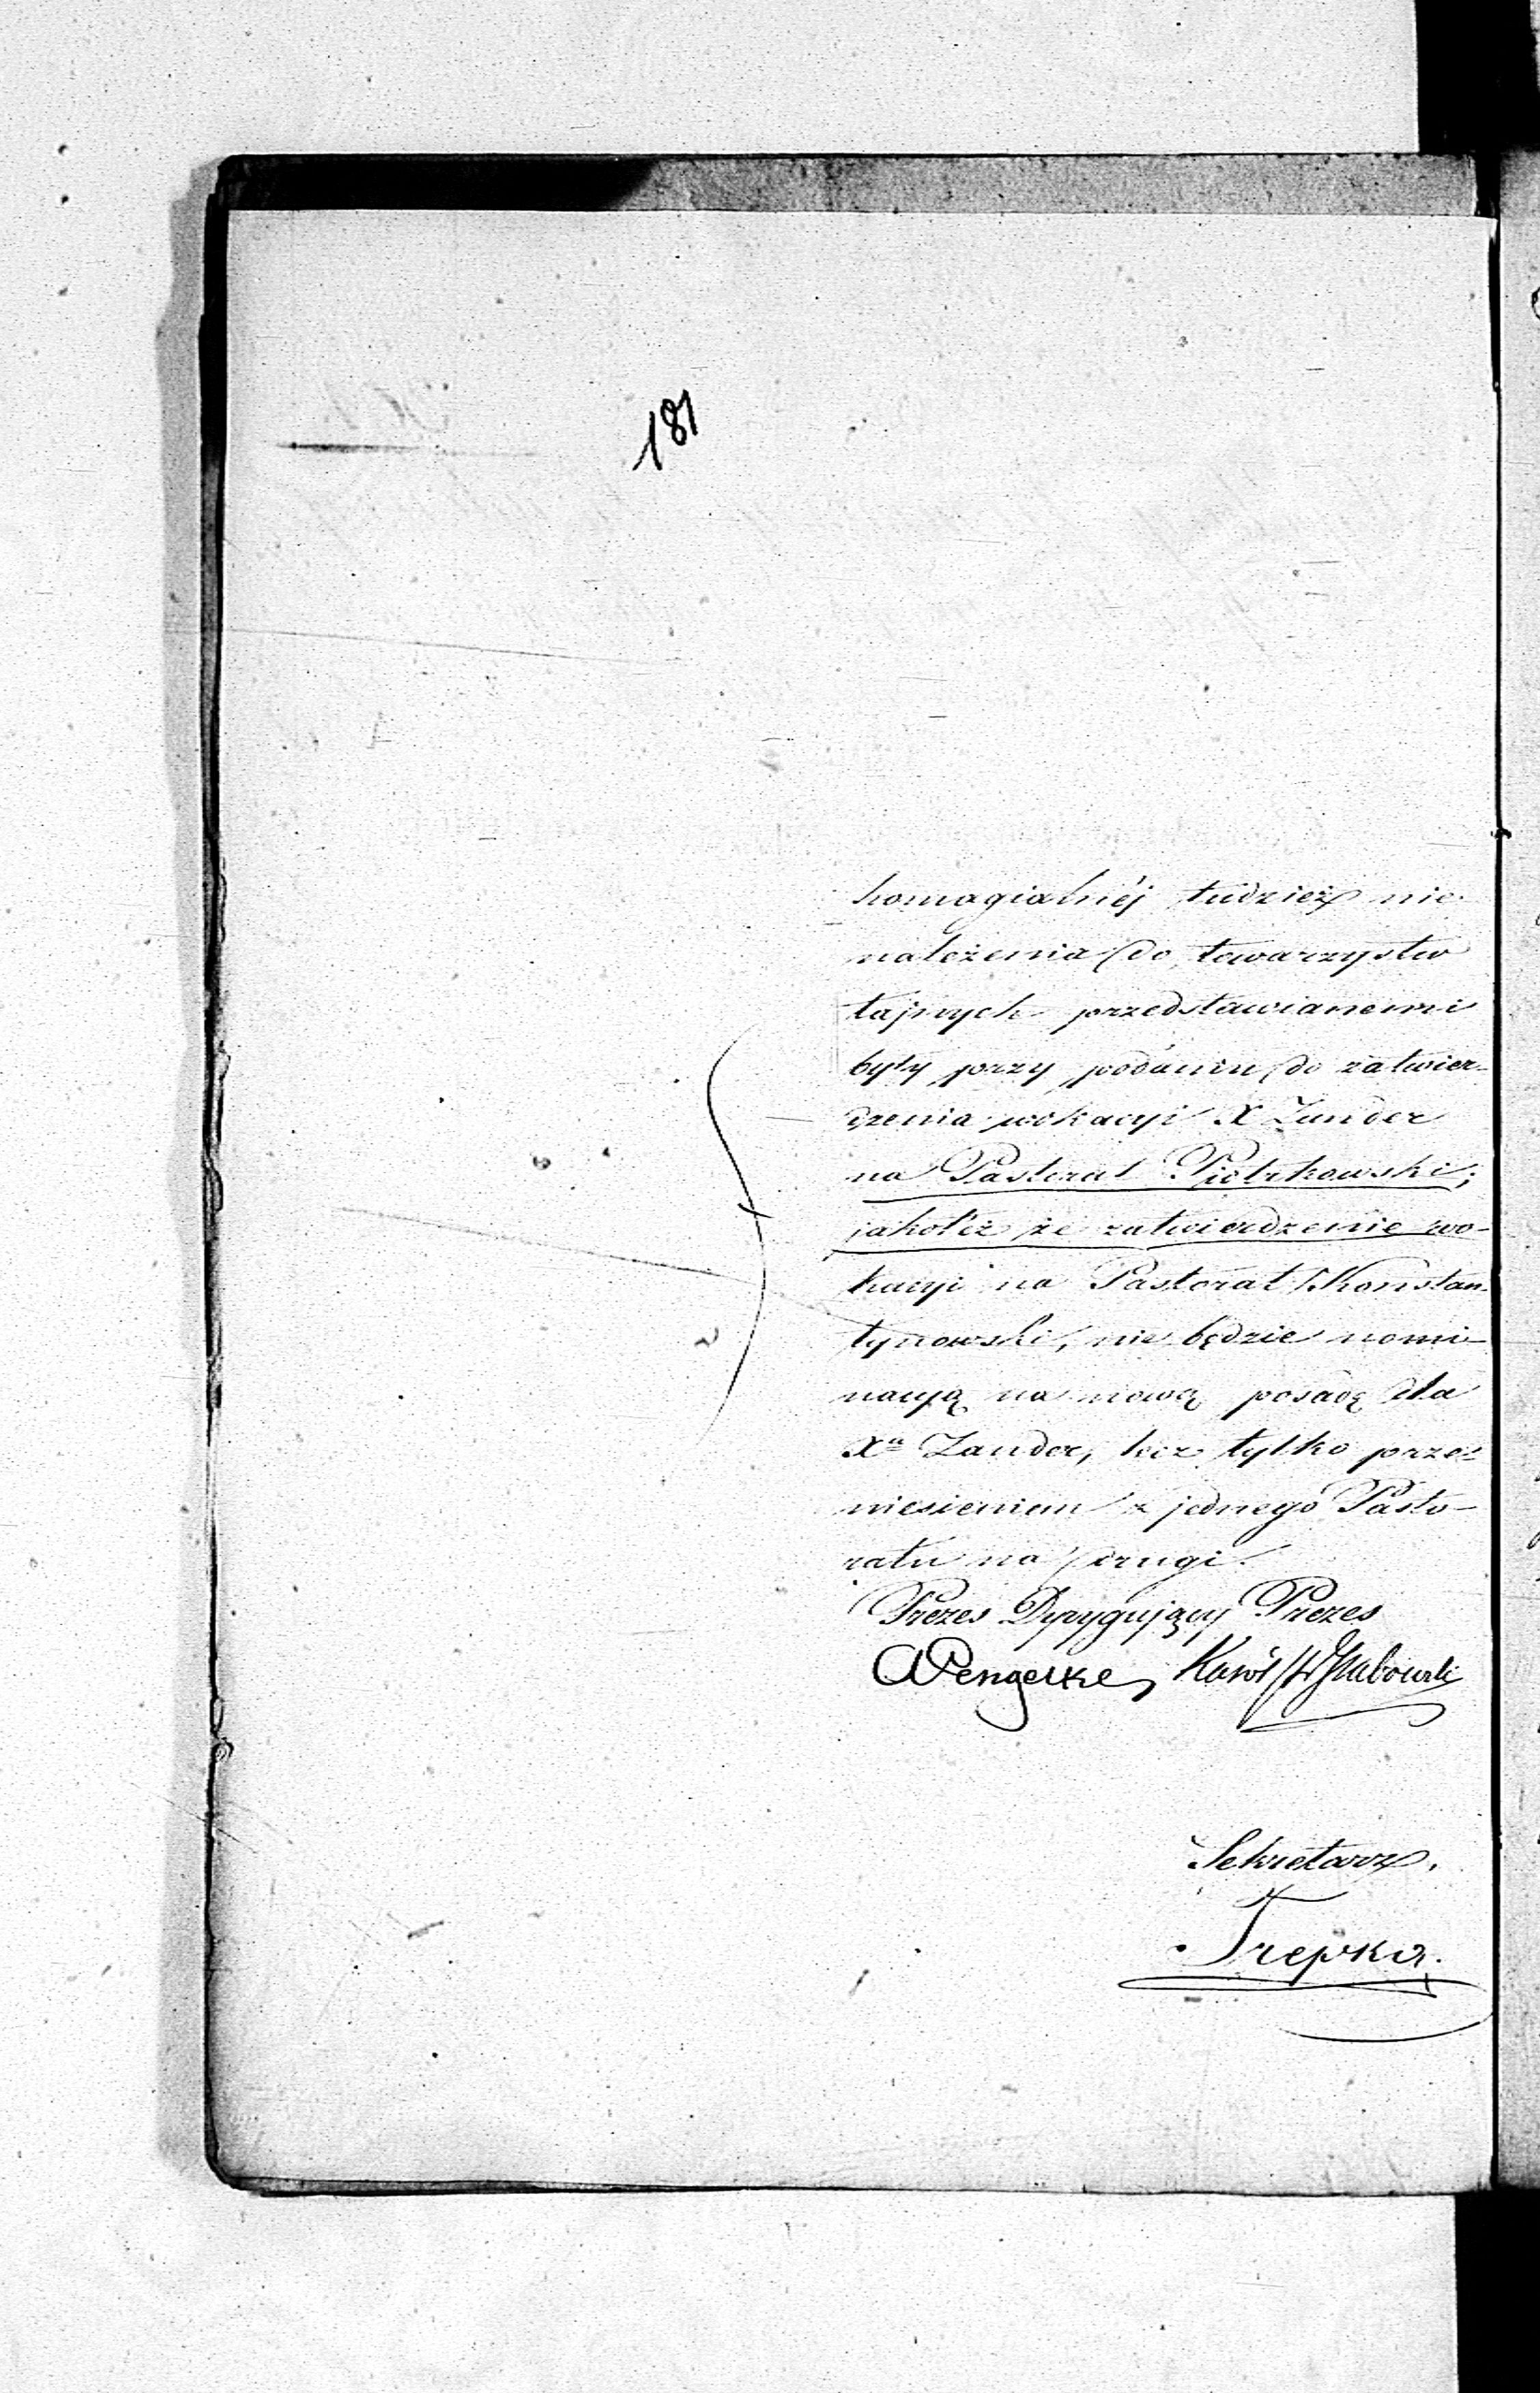 181
homagialnéj tudzież nie
należenia do towarzystw
tajnych przedstawianemi
były przy podaniu do zatwier-
dzenia wokacyi X Zander
na Pastorat Piotrkowski;
jakoteż że zatwierdzenie wo-
kacyi na Pastorat Konstan-
tynowski, nie będzie nomi-
nacyą na nową posadę dla
Xa Zander, lecz tylko prze-
niesieniem z jednego Pasto-
ratu na drugi.
Prezes Dyrygujący Prezes
Wengerke Karol Hr Grabowski
Sekretarz.
Trepka.